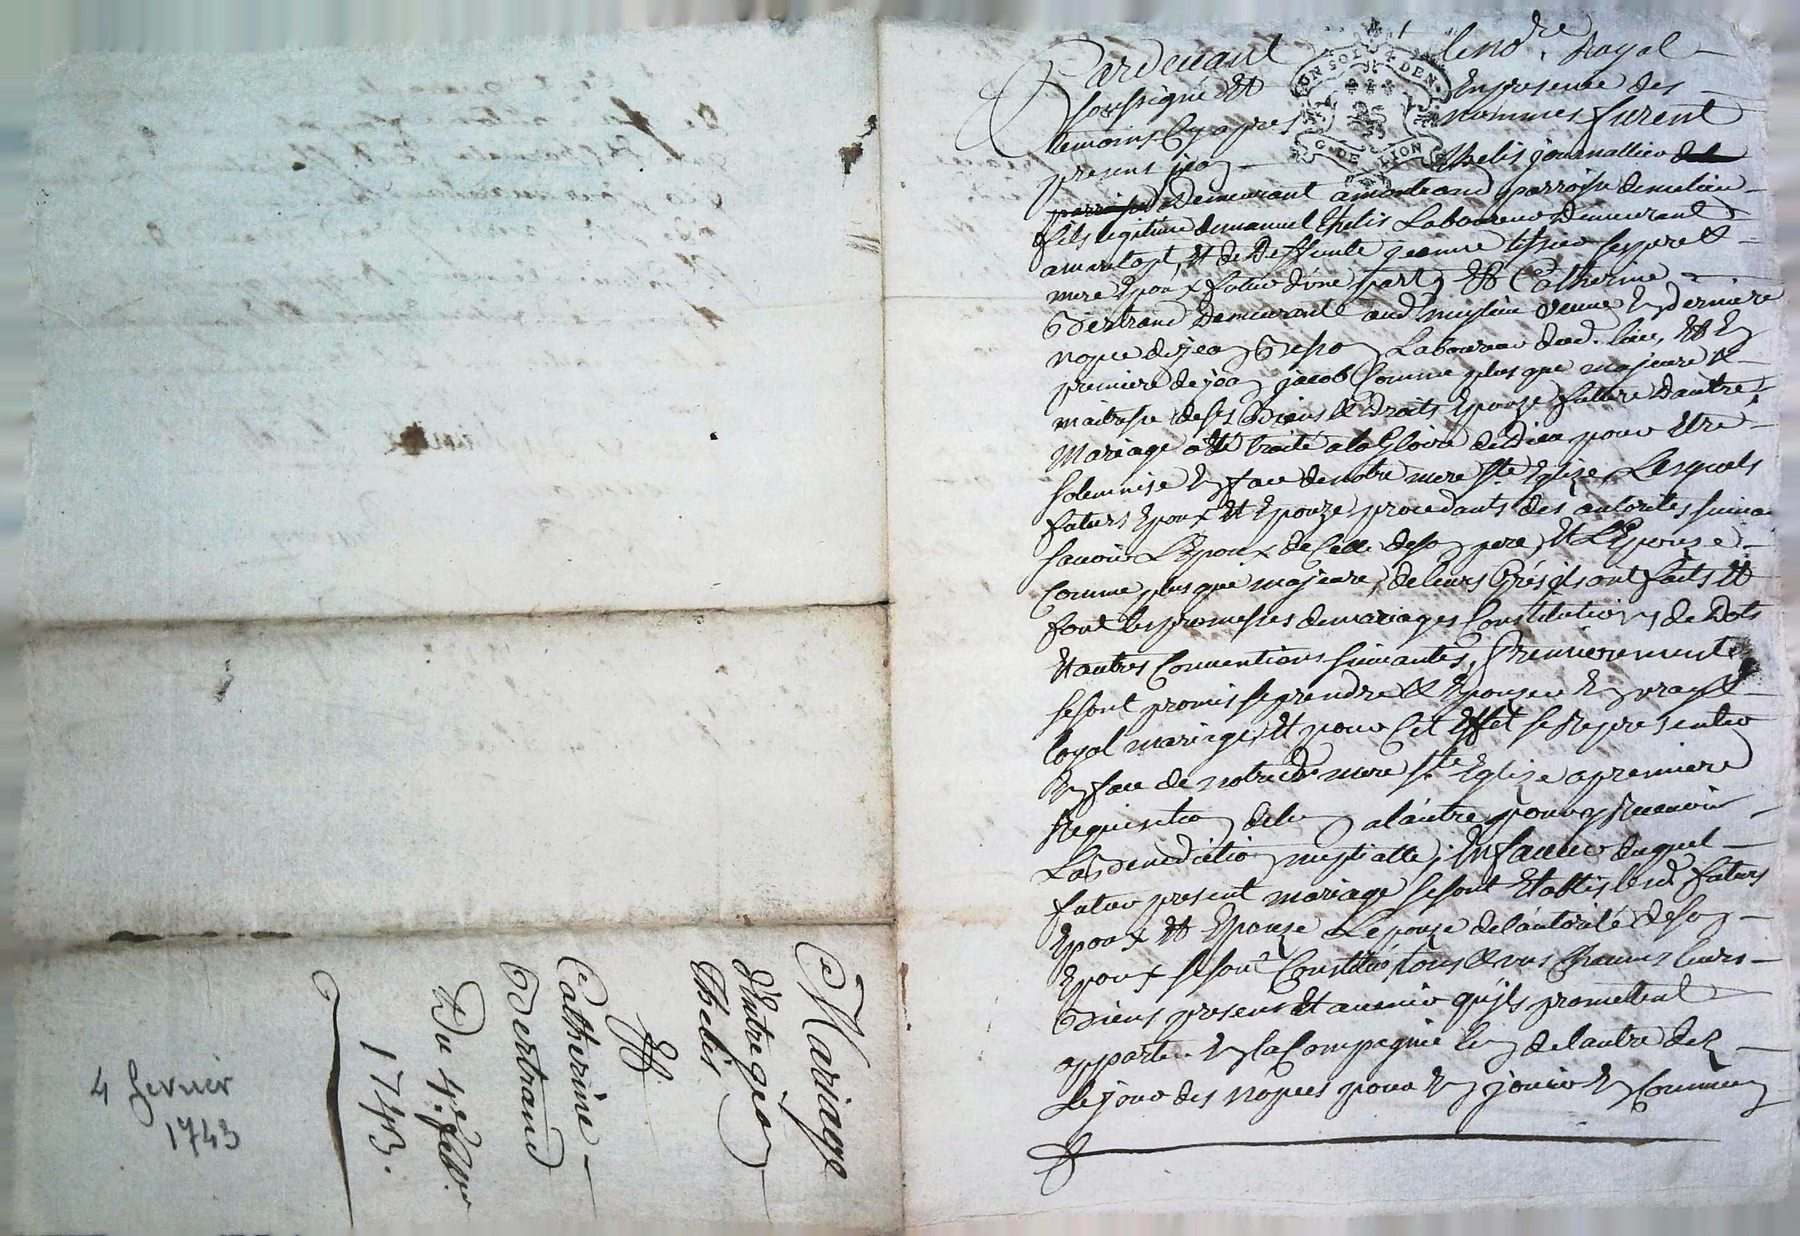 Pardevant le no.re Royal
soussigné Et En presence des
temoins Cy apres nommes furent
presens jean thelis journallier
demeurant a montrand parroisse de
fils legitime demanuel thelis Laboureur Demeurant
a Et de Deffunte jeanne ses pere &
mere Epoux futur d'une part, Et Catherine
Bertrand Demeurante aud. veuve En derniere
nopce de jean Laboureur dud. lieu, Et En
premiere de jean jacob Comme plus que majeure &
maitresse de ses Biens & Droits Epouze future Dautre,
Mariage a été traité a la Gloire de Dieu pour Etre
solemnisé En face de notre mere Ste Eglize, Lesquels
futurs Epoux Et Epouze procedants des autorités
savoir L'Epoux de Celle de son pere, Et L'Epouze
Comme plus que majeure, de leurs Grés ils ont faits Et
font les promesses de mariages Constitutions de Dots
Et autres Conventions suivantes, Premierement
se sont promis se prendre & Epouzer En vray &
loyal mariage, Et pour Cet Effet se Representer
En face de notred. mere Ste Eglize a premiere
Requisition de l'un a l'autre pour y Recevoir
La Benediction nuptialle; En faveur duquel
futur present mariage se sont Etablis lesd. futurs
Epoux Et Epouze L'epouze de l'autorité de son
Epoux se sont Constitués tous & uns Chacuns leurs
Biens presens Et avenir qu'ils promettent
apporter En la Compagnie l'un de l'autre dez
Le jour des nopces pour En jouir En Commun
Mariage
d'Entre jean
Thelis
Et
Catherine
Bertrand
Du 4e febv.
1743.
4 fevrier
1743